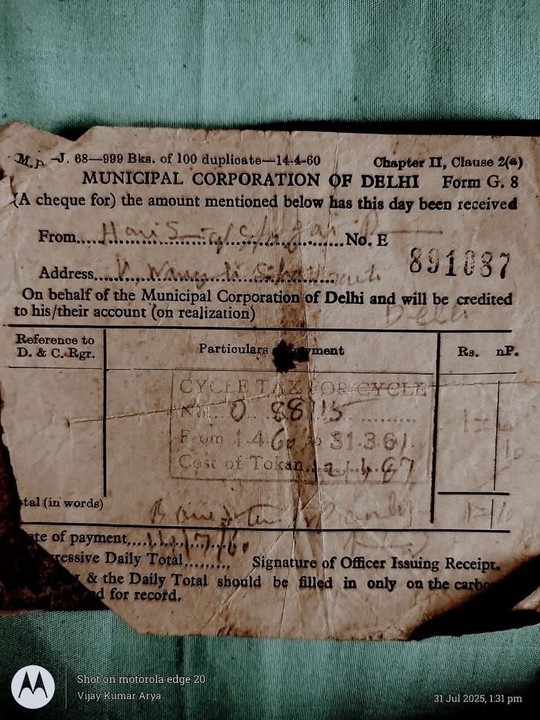 M.P.—J. 68—999 Bks. of 100 duplicate—14-4-60 Chapter II, Clause 2(a)
MUNICIPAL CORPORATION OF DELHI Form G. 8
(A cheque for) the amount mentioned below has this day been received
From No. E
891087
Address
On behalf of the Municipal Corporation of Delhi and will be credited
to his/their account (on realization) Delhi
Reference to
D. & C. Rgr. Particulars Rs. nP.
CYCLE TAX FOR CYCLE
No. 0
From 1.4.60 to 31.3.61
Cost of Token
tal (in words)
te of payment
ressive Daily Total......... Signature of Officer Issuing Receipt.
& the Daily Total should be filled in only on the carbo
d for record.
Shot on motorola edge 20
Vijay Kumar Arya
31 Jul 2025, 1:31 pm